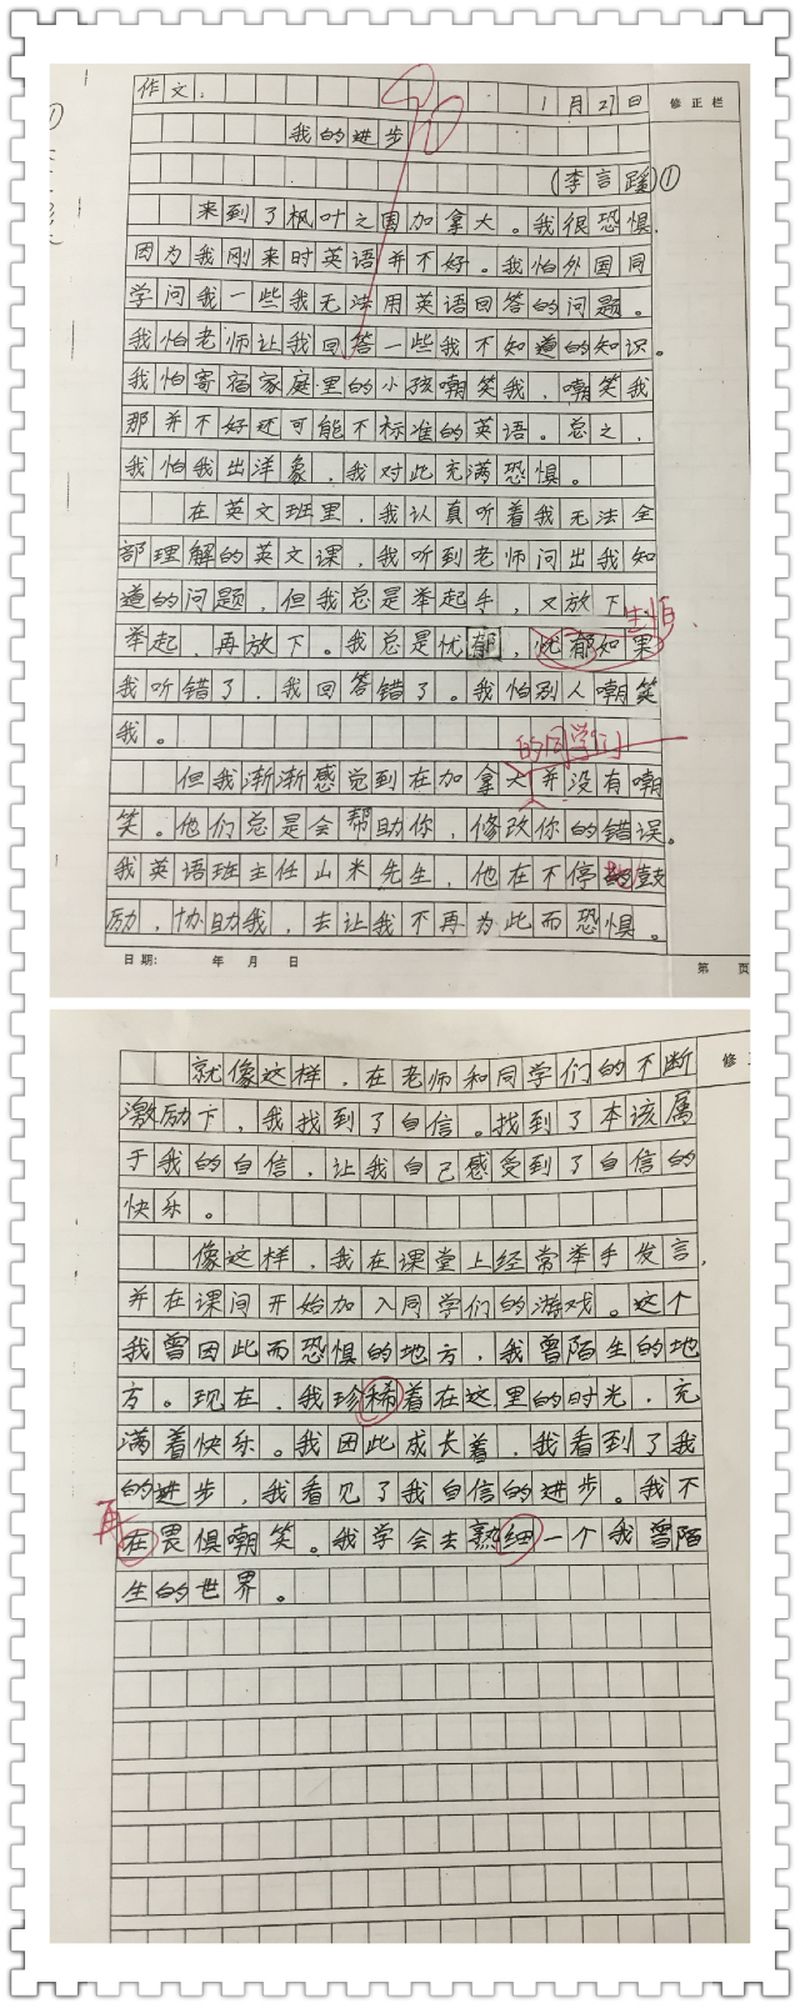 作文：1月27日
修正栏
90
我的进步
（李言蹊）①
来到了枫叶之国加拿大。我很恐惧，
因为我刚来时英语并不好。我怕外国同
学问我一些我无法用英语回答的问题。
我怕老师让我回答一些我不知道的知识。
我怕寄宿家庭里的小孩嘲笑我，嘲笑我
那并不好还可能不标准的英语。总之，
我怕我出洋象，我对此充满恐惧。
在英文班里，我认真听着我无法全
部理解的英文课，我听到老师问出我知
道的问题，但我总是举起手，又放下，
生怕
举起，再放下。我总是忧郁，忧郁如果
我听错了，我回答错了。我怕别人嘲笑
我。
的同学们
但我渐渐感觉到在加拿大并没有嘲
笑。他们总是会帮助你，修改你的错误。
我英语班主任山米先生，他在不停地鼓
励，协助我，去让我不再为此而恐惧。
日期： 年 月 日
第 页
就像这样，在老师和同学们的不断
修
激励下，我找到了自信。找到了本该属
于我的自信，让我自己感受到了自信的
快乐。
像这样，我在课堂上经常举手发言，
并在课间开始加入同学们的游戏。这个
我曾因此而恐惧的地方，我曾陌生的地
方。现在，我珍稀着在这里的时光，充
满着快乐。我因此成长着，我看到了我
的进步，我看见了我自信的进步。我不
再
在畏惧嘲笑。我学会去熟细一个我曾陌
生的世界。